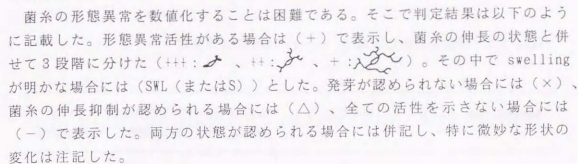 菌糸の形態異常を数値化することは困難である。そこで判定結果は以下のよう
に記載した。形態異常活性がある場合は（+）で表示し、菌糸の伸長の状態と併
せて３段階に分けた（+++: 、++: 、+: ）。その中で swelling
が明かな場合には（SWL（またはS））とした。発芽が認められない場合は（×）、
菌糸の伸長抑制が認められる場合には（△）、全ての活性を示さない場合には
（－）で表示した。両方の状態が認められる場合には併記し、特に微妙な形状の
変化は注記した。